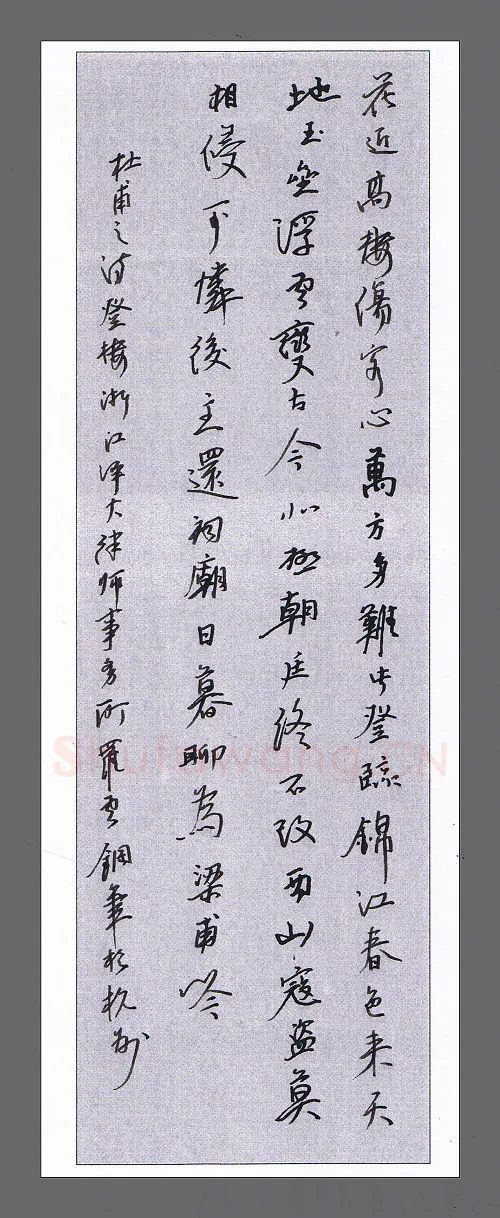 花近高楼傷客心萬方多難此登臨錦江春色来天
地玉壘浮雲變古今北極朝廷終不改西山寇盗莫
相侵可憐後主還祠廟日暮聊為梁甫吟
杜甫之詩登楼浙江泽大律师事务所羅雲鋼筆於杭州
Shufawang.CN